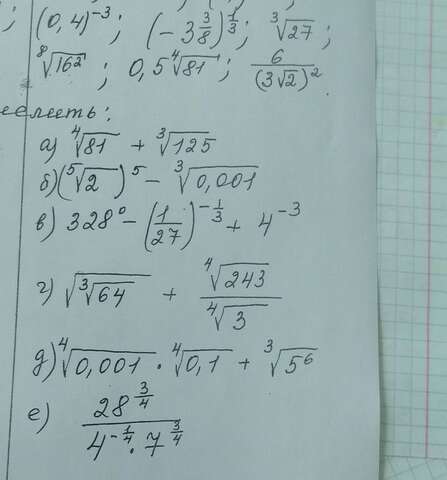 ; (0,4)⁻³; (-3 3/8)^1/3; ∛27;
⁸√16²; 0,5 ⁴√81; 6/(3√2)²
а) ⁴√81 + ∛125
б) (⁵√2)⁵ - ∛0,001
в) 328⁰ - (1/27)^-1/3 + 4⁻³
г) √∛64 + ⁴√243/⁴√3
д) ⁴√0,001 · ⁴√0,1 + ∛5⁶
е) 28^3/4 / 4^-1/4 · 7^3/4